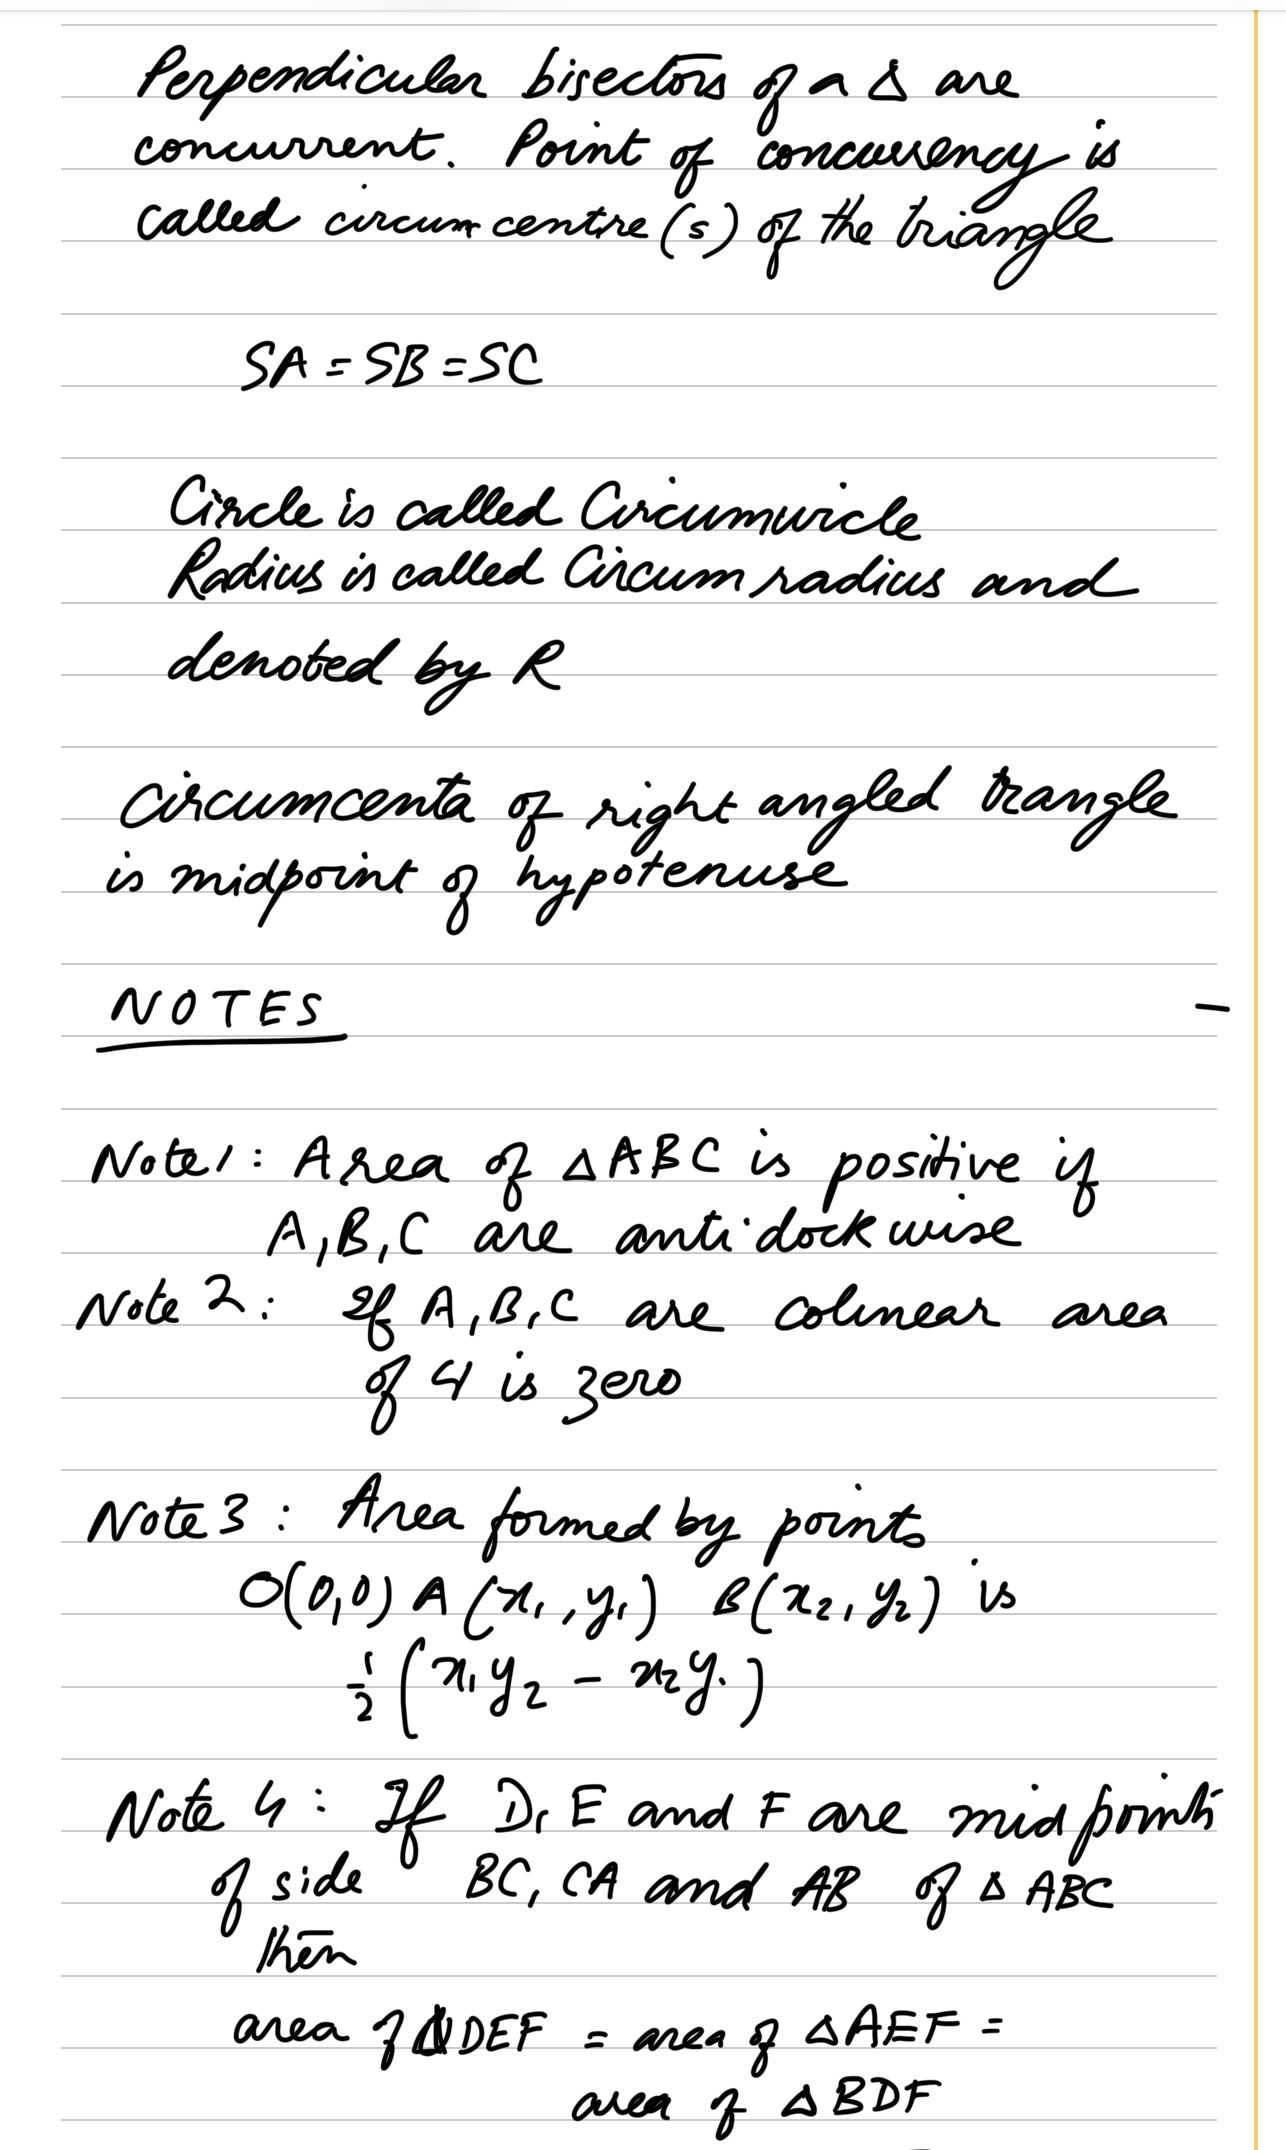 Perpendicular bisectors of a Δ are
concurrent. Point of concurrency is
called circumcentre (s) of the triangle
SA = SB = SC
Circle is called Circumcircle
Radius is called Circumradius and
denoted by R
Circumcenta of right angled trangle
is midpoint of hypotenuse
NOTES
Note 1 : Area of Δ ABC is positive if
A, B, C are anticlockwise
Note 2 : If A, B, C are colinear area
of Δ is zero
Note 3 : Area formed by points
O(0,0) A (x₁, y₁) B(x₂, y₂) is
½ (x₁y₂ - x₂y₁)
Note 4 : If D, E and F are midpoints
of side BC, CA and AB of Δ ABC
then
area of Δ DEF = area of Δ AEF =
area of Δ BDF